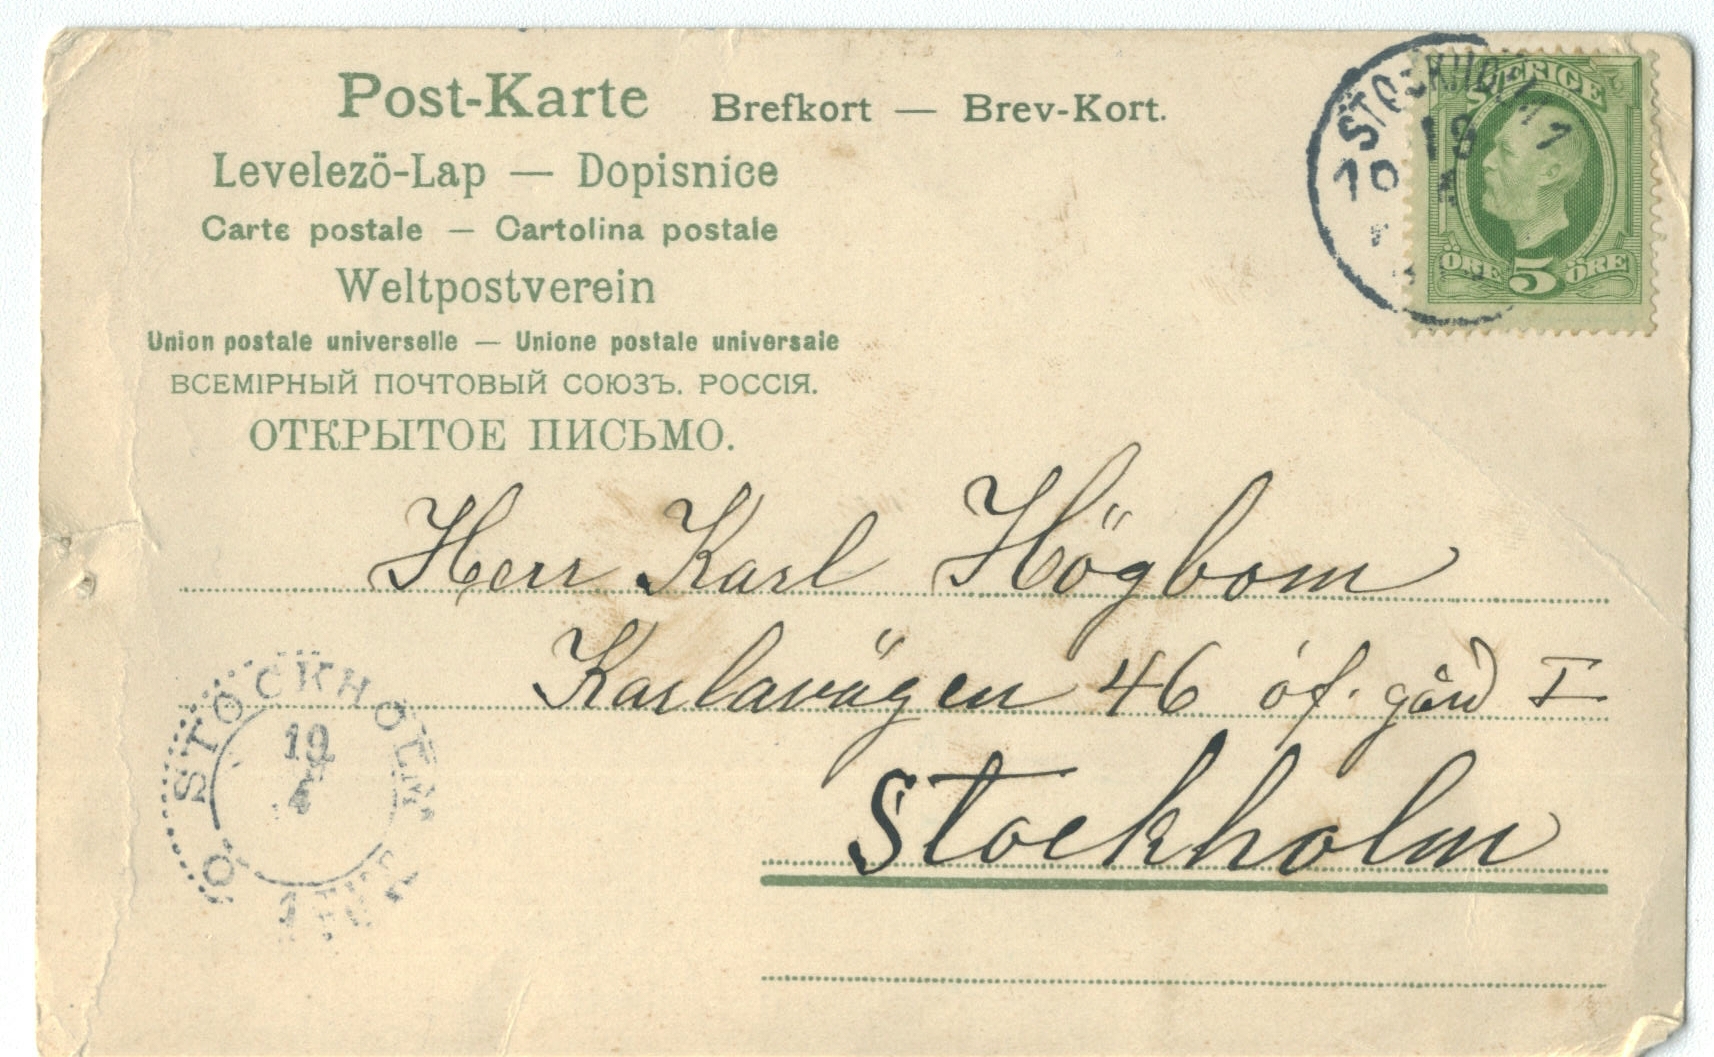 Post-Karte Brefkort — Brev-Kort.
Levelező-Lap — Dopisnice
Carte postale — Cartolina postale
Weltpostverein
Union postale universelle — Unione postale universale
ВСЕМІРНЫЙ ПОЧТОВЫЙ СОЮЗЪ. РОССІЯ.
ОТКРЫТОЕ ПИСЬМО.
STOCKHOLM 1
SVERIGE
ÖRE 5 ÖRE
Herr Karl Högbom
Karlavägen 46 öf. gård I
Stockholm
STOCKHOLM
19
4